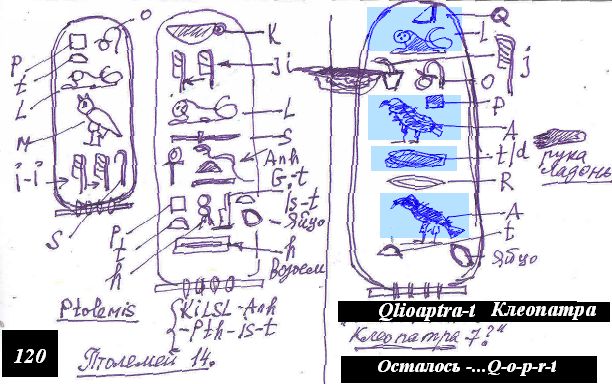 O
P
t
L
M
i-i
S
Ptolemis
K
Ji
L
S
Anh
G.t
Is-t
Яйцо
P
t
h
h
Водоем
KiLSL-Anh
-Pth-Is-t
Птолемей 14.
Q
L
j
O
P
A
t/d
рука
Ладонь
R
A
t
Яйцо
Qlioaptra-t Клеопатра
"Клеопатра 7?"
Осталось -...Q-o-p-r-t
120